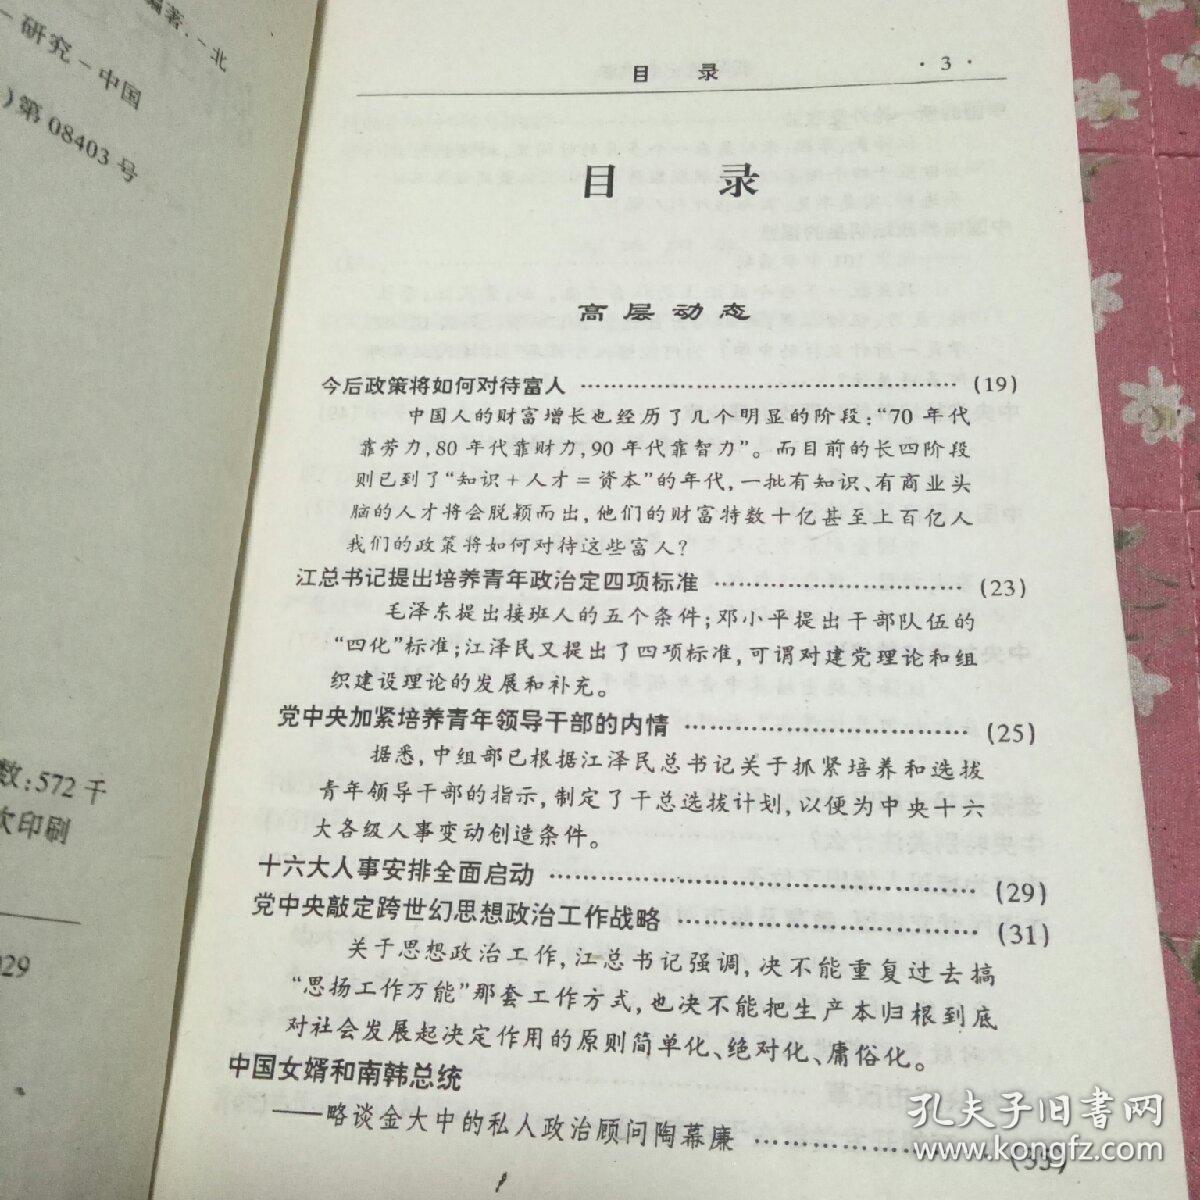 编著.－北
－研究－中国
)第 08403 号
数:572 千
次印刷
029
目 录 ·3·
目 录
高层动态
今后政策将如何对待富人 …………………………………… (19)
中国人的财富增长也经历了几个明显的阶段：“70 年代
靠劳力,80 年代靠财力,90 年代靠智力”。而目前的长四阶段
则已到了“知识＋人才＝资本”的年代,一批有知识、有商业头
脑的人才将会脱颖而出,他们的财富特数十亿甚至上百亿人
我们的政策将如何对待这些富人?
江总书记提出培养青年政治定四项标准 ………………………… (23)
毛泽东提出接班人的五个条件;邓小平提出干部队伍的
“四化”标准;江泽民又提出了四项标准,可谓对建党理论和组
织建设理论的发展和补充。
党中央加紧培养青年领导干部的内情 …………………………… (25)
据悉,中组部已根据江泽民总书记关于抓紧培养和选拔
青年领导干部的指示,制定了干总选拔计划,以便为中央十六
大各级人事变动创造条件。
十六大人事安排全面启动 ……………………………………… (29)
党中央敲定跨世幻思想政治工作战略 …………………………… (31)
关于思想政治工作,江总书记强调,决不能重复过去搞
“思扬工作万能”那套工作方式,也决不能把生产本归根到底
对社会发展起决定作用的原则简单化、绝对化、庸俗化。
中国女婿和南韩总统
——略谈金大中的私人政治顾问陶幕廉 ……………………… (35)
孔夫子旧书网
www.kongfz.com